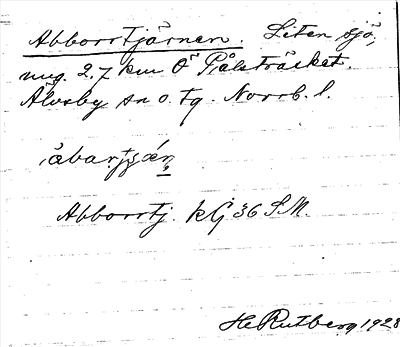 Abborrtjärnen. Liten sjö,
2.7 km Ö Pålsträsket.
Älvsby sn o. tg. Norrb. l.
Abborrtj. kG 36 S.M.
H Rutberg 1928